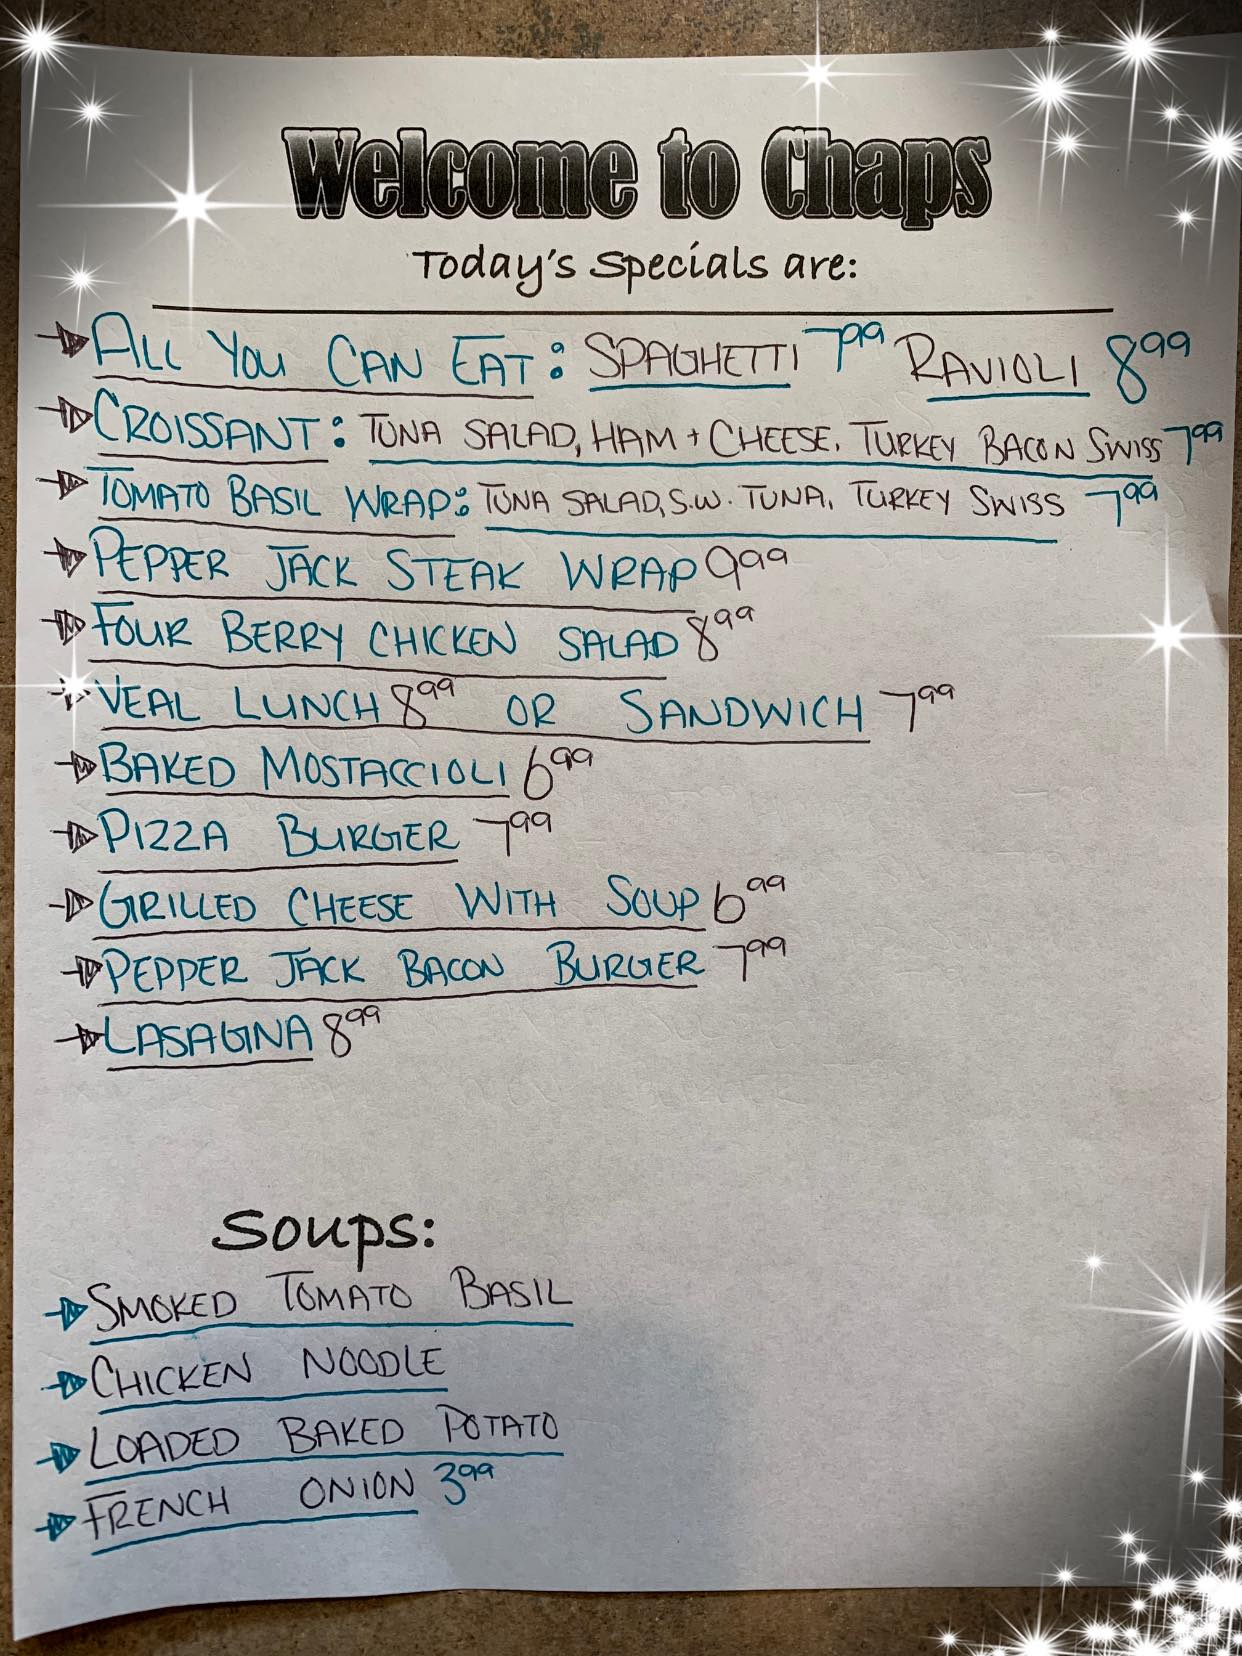 Welcome to Chaps
Today's Specials are:
ALL YOU CAN EAT: SPAGHETTI 7.99 RAVIOLI 8.99
CROISSANT: TUNA SALAD, HAM + CHEESE, TURKEY BACON SWISS 7.99
TOMATO BASIL WRAP: TUNA SALAD, S.W. TUNA, TURKEY SWISS 7.99
PEPPER JACK STEAK WRAP 9.99
FOUR BERRY CHICKEN SALAD 8.99
VEAL LUNCH 8.99 OR SANDWICH 7.99
BAKED MOSTACCIOLI 6.99
PIZZA BURGER 7.99
GRILLED CHEESE WITH SOUP 6.99
PEPPER JACK BACON BURGER 7.99
LASAGNA 8.99
Soups:
SMOKED TOMATO BASIL
CHICKEN NOODLE
LOADED BAKED POTATO
FRENCH ONION 3.99